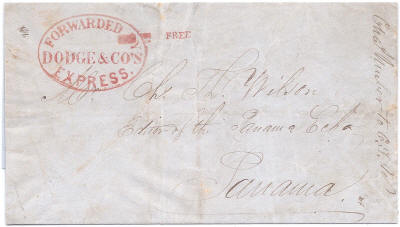 FORWARDED BY
DODGE & CO'S
EXPRESS.
FREE
Mr. Chs. D. Wilson
Editor of the Panama Echo
Panama.